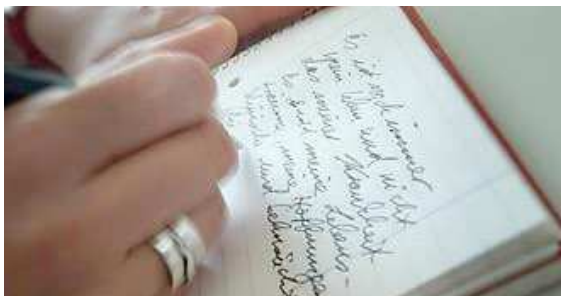 Es ist noch immer
mein Weg und nicht
das meiner Krankheit
Es sind meine Lebens-
träume, meine Hoffnungen
Wünsche und Sehnsüchte